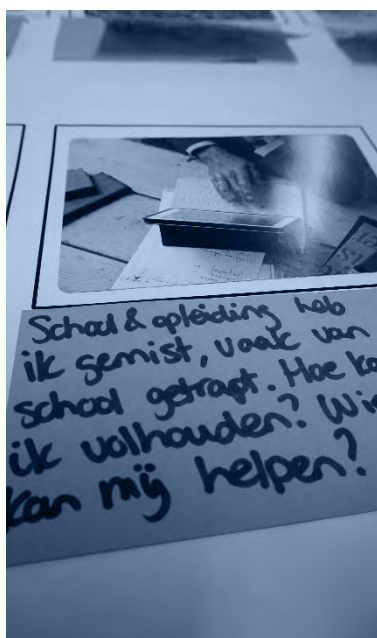 School & opleiding heb
ik gemist, vaak van
school getrapt. Hoe ka
ik volhouden? Wie
kan mij helpen?